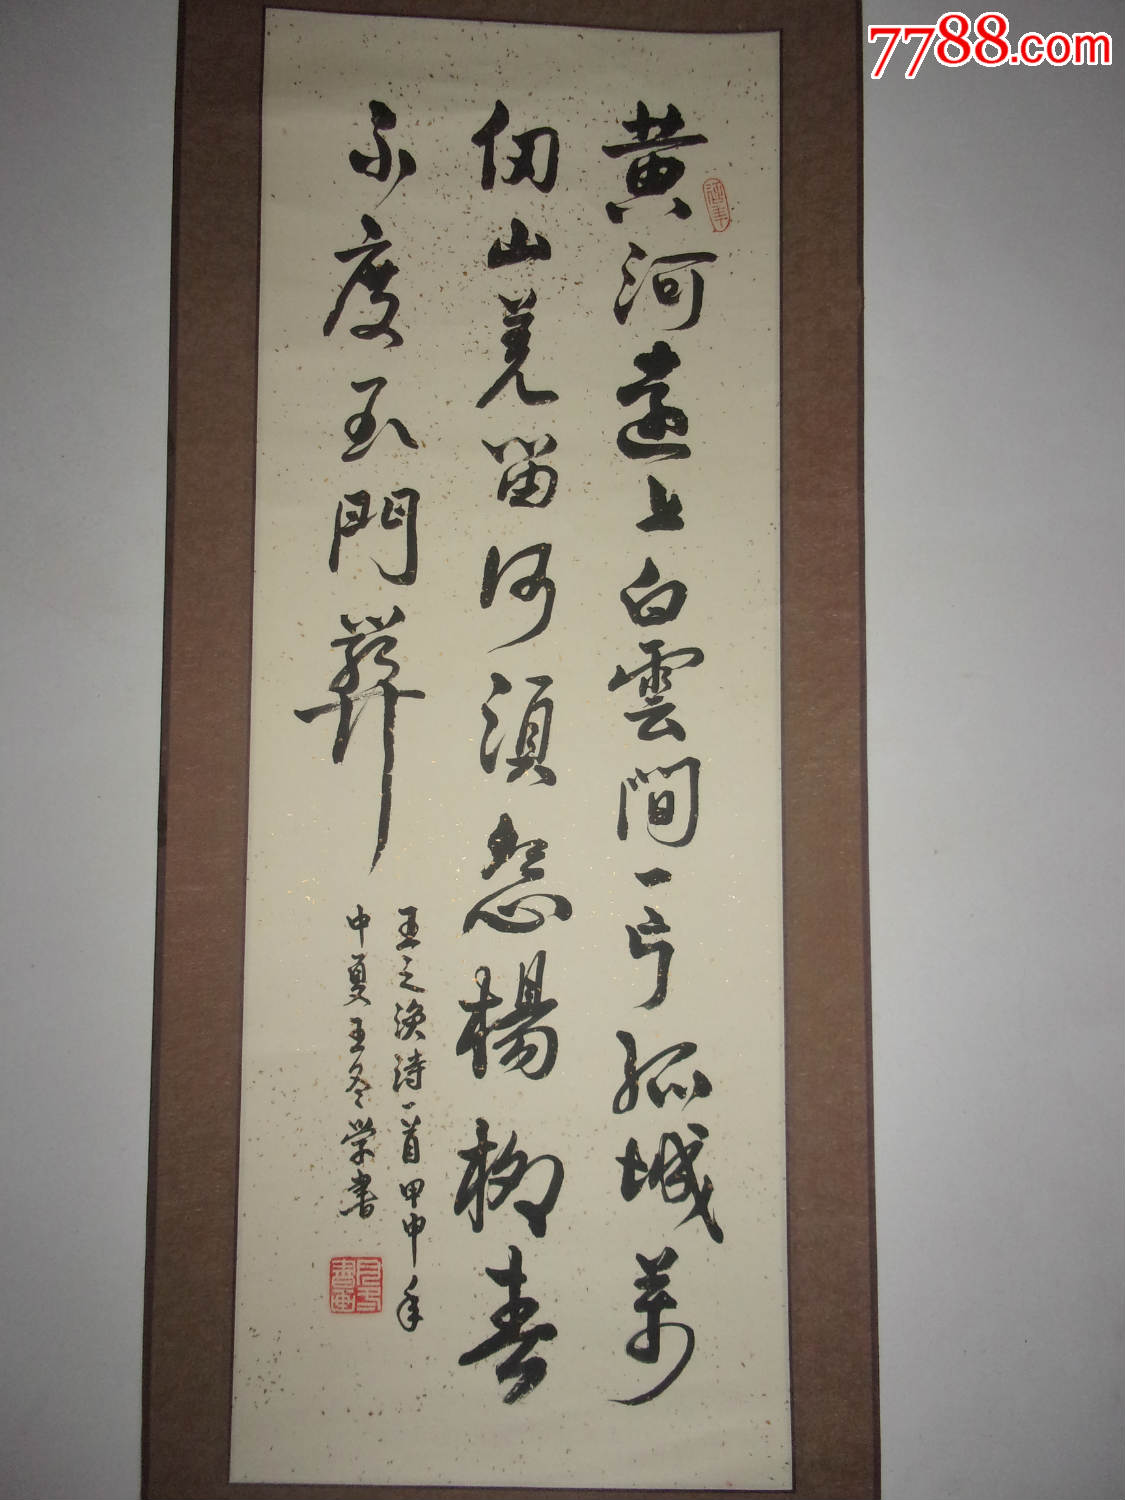 7788.com
黄河遠上白雲間一片孤城萬
仞山羌笛何須怨楊柳春
不度玉門關
王之渙詩一首甲申年
中夏王冬学書